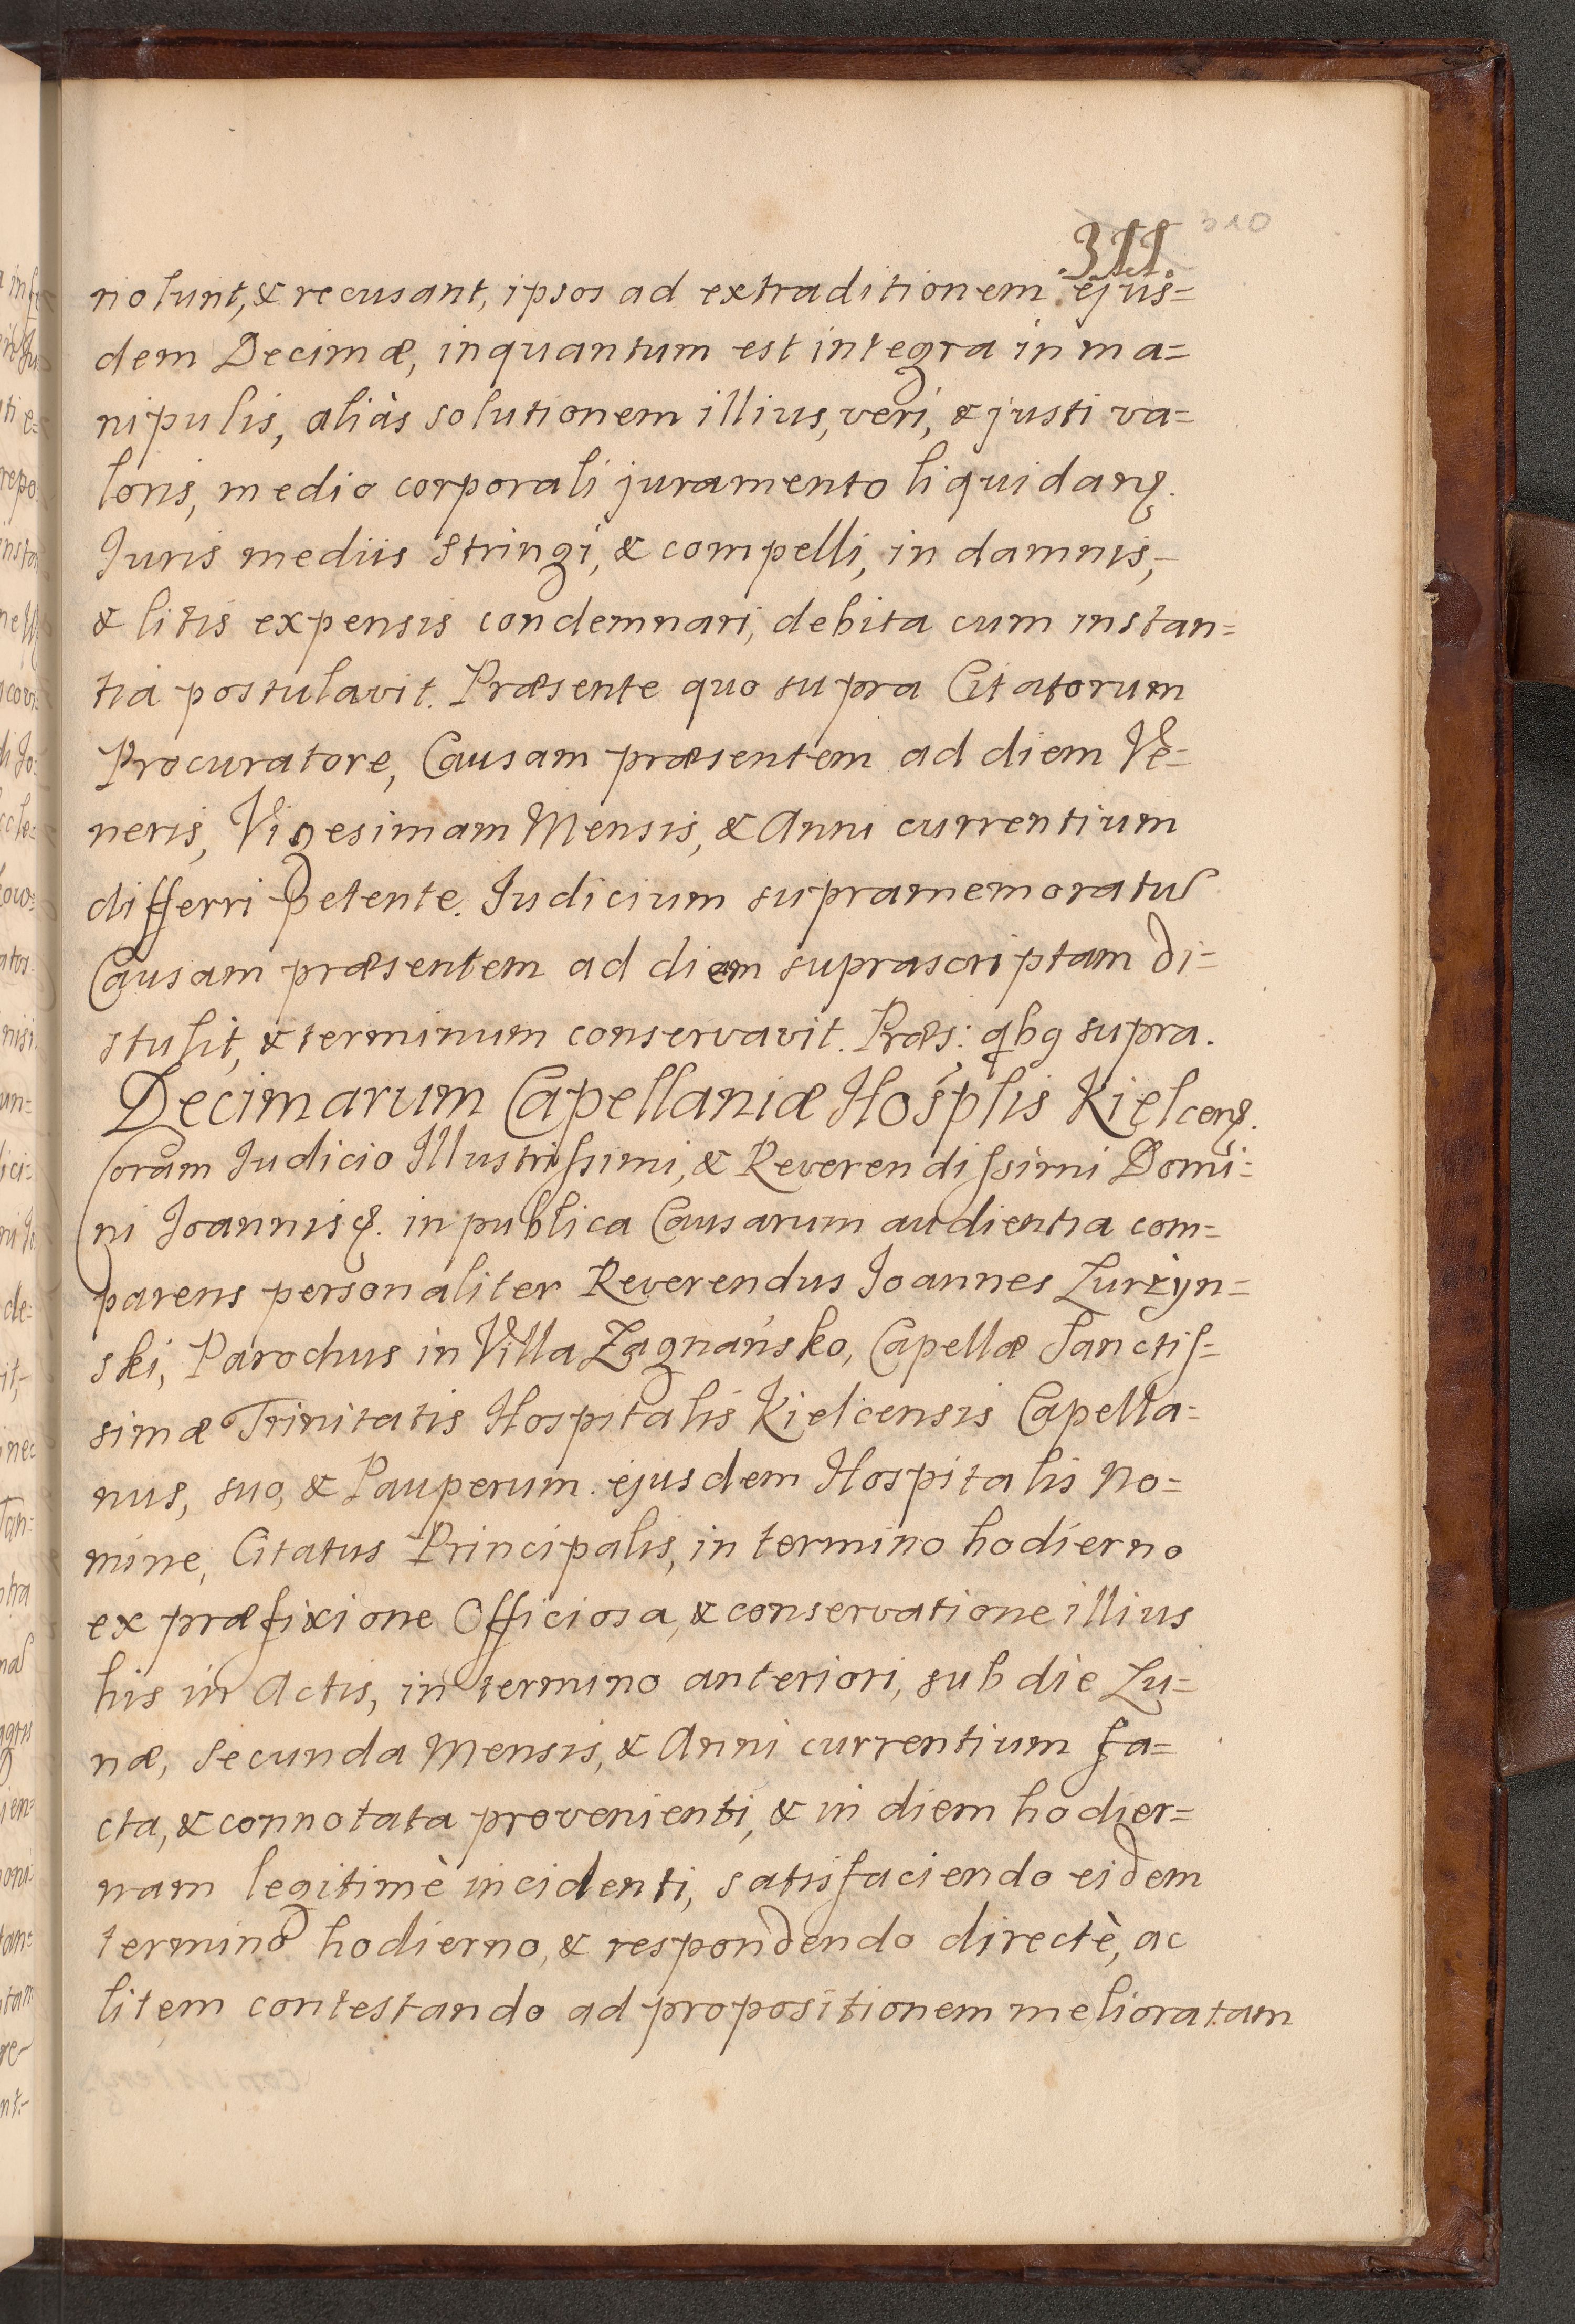 .311. 310
nolunt, & recusant, ipsos ad extraditionem ejus=
dem Decimæ, inquantum est integra in ma=
nipulis, aliàs solutionem illius, veri, & justi va=
loris, medio corporali juramento liquidanꝭ.
Juris mediis stringi, & compelli, in damnis,
& litis expensis condemnari, debita cum instan=
tia postulavit. Præsente quo supra Citatorum
Procuratore, Causam præsentem ad diem Ve=
neris, Vigesimam Mensis, & Anni currentium
differri petente. Judicium supramemoratũ
Causam præsentem ad diem suprascriptam di=
stulit, & terminum conservavit. Præs: qbꝯ supra.
Decimarum Capellaniæ Hosplis Kielcenꝭ.
Coram Judicio Illustrissimi, & Reverendissimi Domi=
ni Joannis ꝭ. in publica Causarum audientia com=
parens personaliter Reverendus Joannes Lurżyn=
ski, Parochus in Villa Zagnańsko, Capellæ Sanctis=
simæ Trinitatis Hospitalis Kielcensis Capella=
nus, suo, & Pauperum ejusdem Hospitalis no=
mine, Citatus Principalis, in termino hodierno
ex præfixione Officiosa, & conservatione illius
his in Actis, in termino anteriori, sub die Lu=
næ, Secunda Mensis, & Anni currentium fa=
cta, & connotata provenienti, & in diem hodier=
nam legitimè incidenti, satisfaciendo eidem
termino hodierno, & respondendo directè, ac
litem contestando ad propositionem melioratam